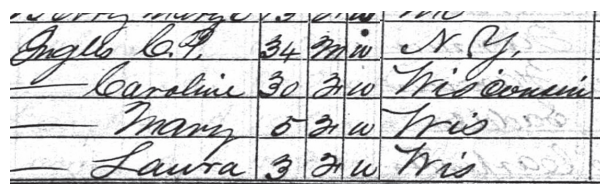 Ingles C. P. 34 M W N. Y.
— Caroline 30 F W Wisconsin
— Mary 5 F W Wis
— Laura 3 F W Wis